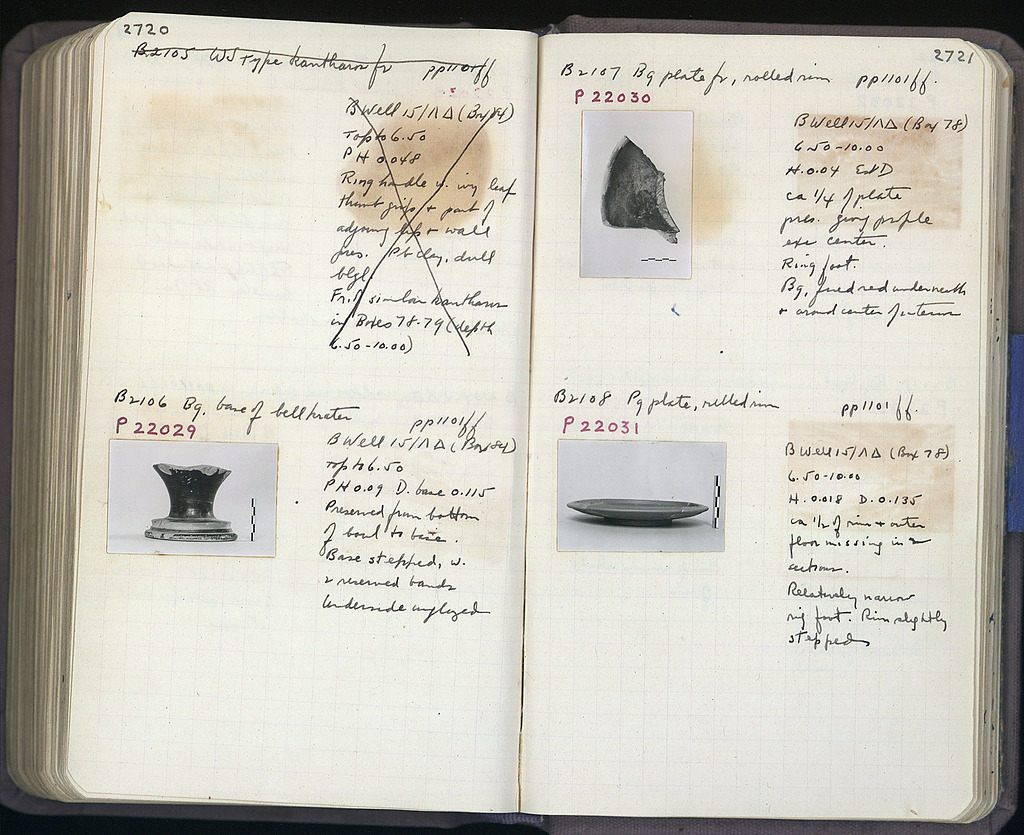 2720
B2105 WS Type kantharos fr pp1101ff
B Well 15/ΛΔ (Box 84)
Top to 6.50
PH 0.048
Ring handle w. ivy leaf
thumb grip + part of
adjoining lip + wall
pres. Pb clay, dull
blgl
Fr. of similar kantharos
in Boxes 78-79 (depth
6.50-10.00)
B2106 Bg. base of bell krater pp1101ff
P 22029
B Well 15/ΛΔ (Box 84)
Top to 6.50
PH 0.09 D. base 0.115
Preserved from bottom
of bowl to base.
Base stepped, w.
2 reserved bands
Underside unglazed
2721
B2107 Bg plate fr, rolled rim pp1101ff.
P 22030
B Well 15/ΛΔ (Box 78)
6.50-10.00
H. 0.04 Est D
ca 1/4 of plate
pres. giving profile
exc center.
Ring foot.
Bg, fired red underneath
+ around center of interior
B2108 Pg plate, rolled rim pp1101ff.
P 22031
B Well 15/ΛΔ (Box 78)
6.50-10.00
H. 0.018 D. 0.135
ca 1/2 of rim + outer
floor missing in 2
sections.
Relatively narrow
ring foot. Rim slightly
stepped